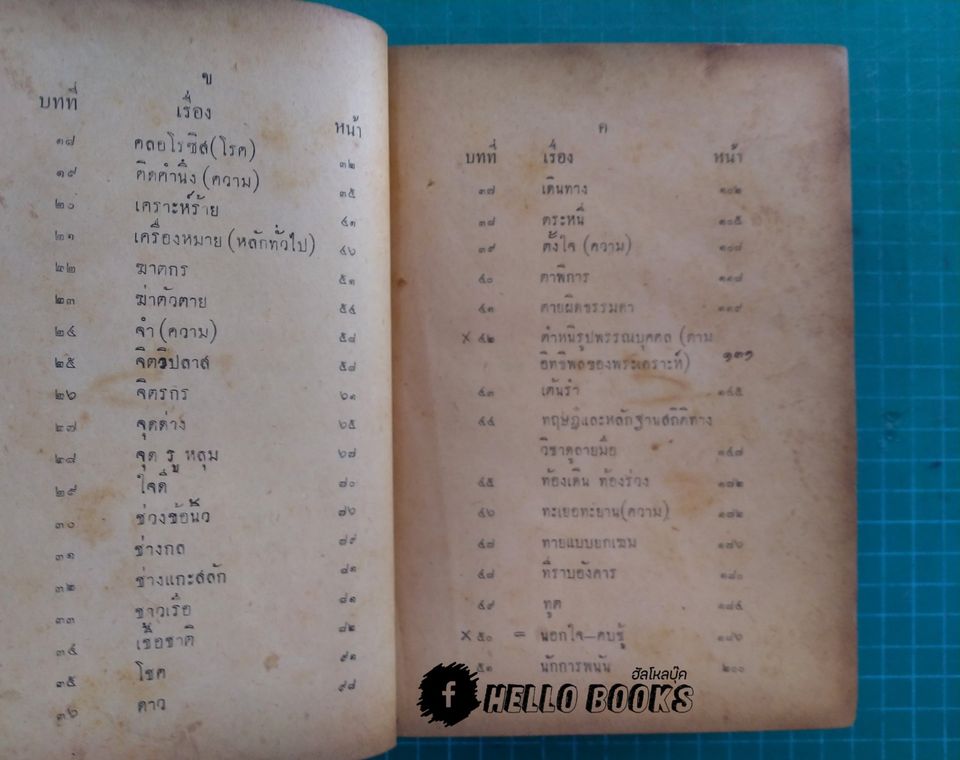 ข
บทที่ เรื่อง หน้า
๑๗ คลอโรซิส (โรค) ๓๒
๑๙ คิดคำนึง (ความ) ๓๕
๒๐ เคราะห์ร้าย ๔๑
๒๑ เครื่องหมาย (หลักทั่วไป) ๔๖
๒๒ ฆาตกร ๕๑
๒๓ ฆ่าตัวตาย ๕๔
๒๔ จำ (ความ) ๕๘
๒๕ จิตวิปลาส ๕๘
๒๖ จิตรกร ๖๑
๒๗ จุดด่าง ๖๕
๒๘ จุด รู หลุม ๖๗
๒๙ ใจดี
๓๐ ช่วงข้อนิ้ว
๓๑ ช่างกล
๓๒ ช่างแกะสลัก ๘๑
๓๓ ชาวเรือ ๘๑
๓๔ เชื้อชาติ ๘๒
๓๕ โชค ๙๑
๓๖ ดาว ๙๘
ค
บทที่ เรื่อง หน้า
๓๗ เดินทาง ๑๐๒
๓๘ ตระหนี่ ๑๐๕
๓๙ ตั้งใจ (ความ) ๑๐๘
๔๐ ตาพิการ ๑๑๘
๔๑ ตายผิดธรรมดา ๑๑๙
× ๔๒ ตำหนิรูปพรรณบุคคล (ตาม
อิทธิพลของพระเคราะห์) ๑๓๑
๔๓ เต้นรำ ๑๔๕
๔๔ ทฤษฎีและหลักฐานสถิติทาง
วิชาดูลายมือ ๑๔๗
๔๕ ท้องเดิน ท้องร่วง
๔๖ ทะเยอทะยาน (ความ)
๔๗ ทายแบบยกเฆม
๔๘ ที่ราบอังคาร ๑๘๐
๔๙ ทูต ๑๘๕
× ๕๐ = นอกใจ–คบชู้ ๑๘๖
๕๑ นักการพนัน ๒๐๐
ฮัลโหลบุ๊ค
f HELLO BOOKS